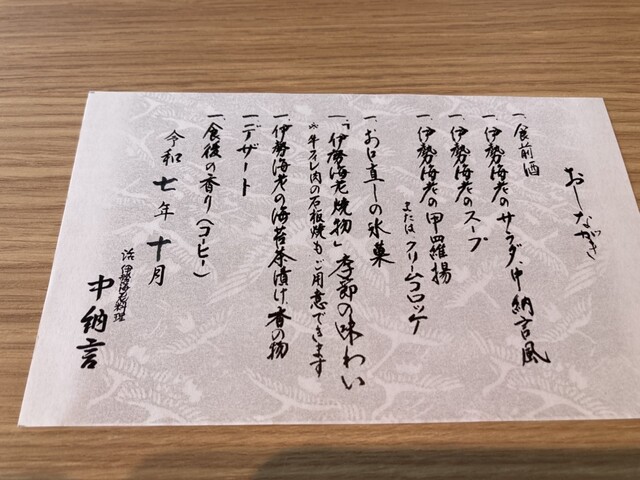 おしながき
一、食前酒
一、伊勢海老のサラダ、中納言風
一、伊勢海老のスープ
一、伊勢海老の甲羅揚
またはクリームコロッケ
一、お口直しの氷菓
一、「伊勢海老焼物」季節の味わい
※牛フィレ肉の石板焼もご用意できます
一、伊勢海老の海苔茶漬け、香の物
一、デザート
一、食後の香り(コーヒー)
令和七年十月
活伊勢海老料理
中納言